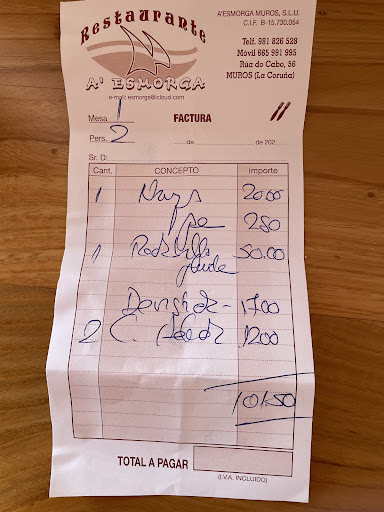 Restaurante
A' ESMORGA
e-mail: esmorge@icloud.com
A'ESMORGA MUROS, S.L.U.
C.I.F. B-15.730.054
Telf. 981 826 528
Móvil 665 991 995
Rúa do Cabo, 56
MUROS (La Coruña)
Mesa 1
FACTURA
Pers. 2
de de 202
Sr. D:
Cant. CONCEPTO Importe
1 2000
250
1 50.00
- 1700
2 C. 1200
101.50
TOTAL A PAGAR
(I.V.A. INCLUIDO)